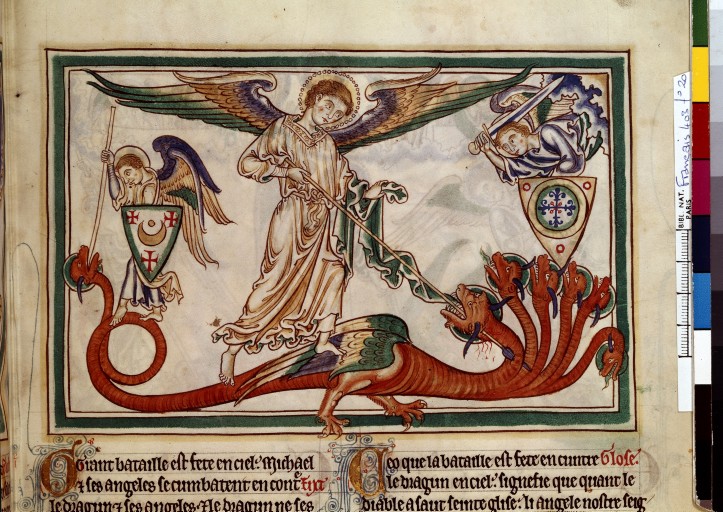 Grant bataille est fete en ciel. Michael
⁊ ses angeles se cumbatent en cont͛ Tixt͛
le dragun ⁊ ses angeles. ⁊ le dragun ne ses
Ceo que la bataille est fete en cuntre Glose.
le dragun en ciel: signefie que quant le
diable asaut seinte glise: li angele nostre seig
BIBL. NAT.
PARIS
Français 403 f° 20